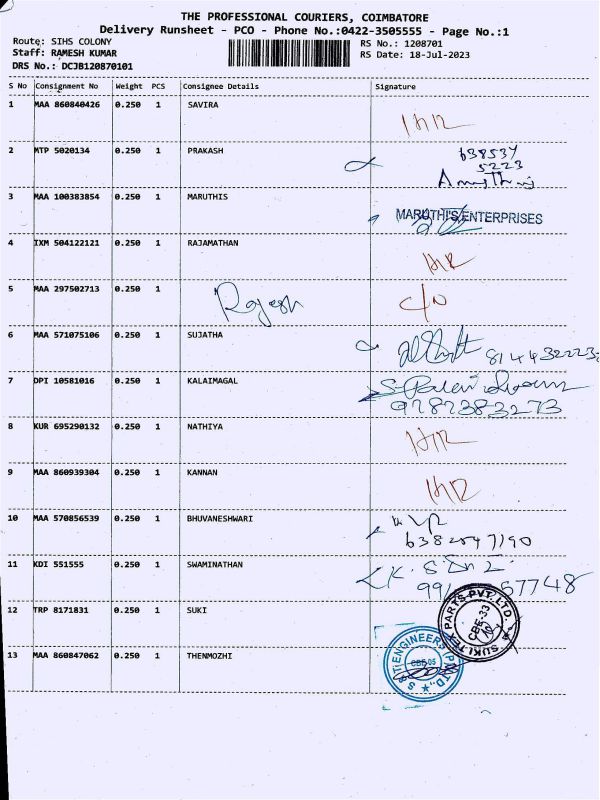 THE PROFESSIONAL COURIERS, COIMBATORE
Delivery Runsheet - PCO - Phone No.:0422-3505555 - Page No.:1
Route: SIHS COLONY
RS No.: 1208701
Staff: RAMESH KUMAR
RS Date: 18-Jul-2023
DRS No.: DCJB120870101
S No Consignment No Weight PCS Consignee Details Signature
1 MAA 860840426 0.250 1 SAVIRA
2 MTP 5020134 0.250 1 PRAKASH
638534
5223
3 MAA 100383854 0.250 1 MARUTHIS MARUTHI'S ENTERPRISES
4 IXM 504122121 0.250 1 RAJAMATHAN
5 MAA 297502713 0.250 1 Rajesh C/O
6 MAA 571075106 0.250 1 SUJATHA
7 DPI 10581016 0.250 1 KALAIMAGAL
9787383273
8 KUR 695290132 0.250 1 NATHIYA
9 MAA 860939304 0.250 1 KANNAN
10 MAA 570856539 0.250 1 BHUVANESHWARI
11 KDI 551555 0.250 1 SWAMINATHAN
67748
12 TRP 8171831 0.250 1 SUKI SUKI TEX PARTS PVT. LTD. CBE-33
13 MAA 860847062 0.250 1 THENMOZHI ENGINEERS (P) LTD., CBE-05